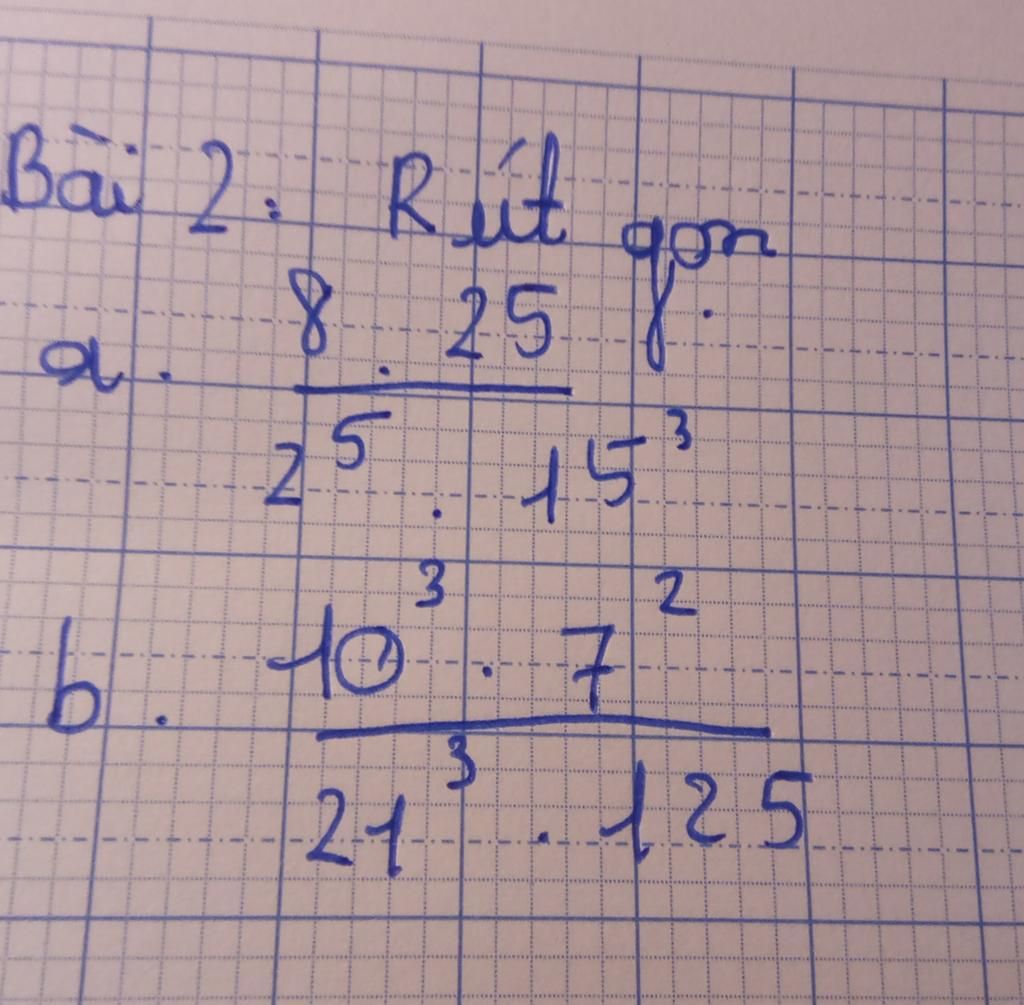 Bài 2: Rút gọn
a. 8 . 25
2⁵ . 15³
b. 10³ . 7²
21³ . 125